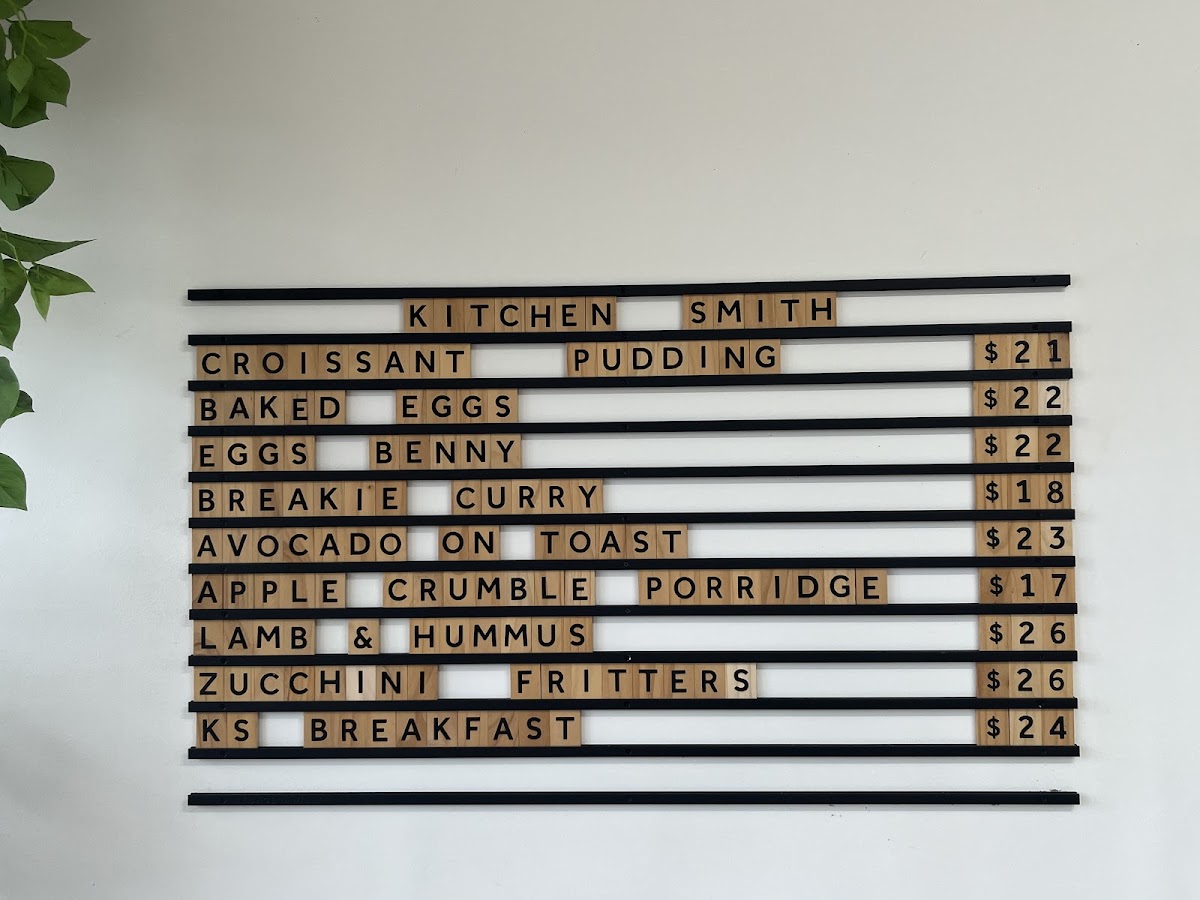 KITCHEN SMITH
CROISSANT PUDDING $21
BAKED EGGS $22
EGGS BENNY $22
BREAKIE CURRY $18
AVOCADO ON TOAST $23
APPLE CRUMBLE PORRIDGE $17
LAMB & HUMMUS $26
ZUCCHINI FRITTERS $26
KS BREAKFAST $24